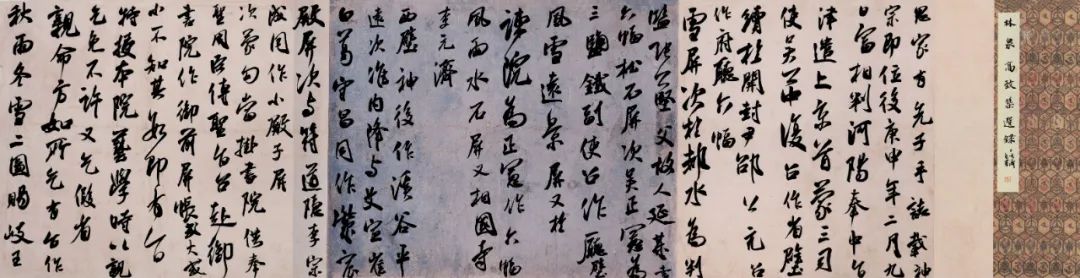 林泉高致集選錄
思家有先子手誌載神
宗即位後庚申年二月九
日富相判河陽奉中旨
津遣上京首蒙三司
使吳公中復召作省壁
續於開封尹邵公元召
作府廳六幅
雪屏次於都水為判
監張公堅父故人延某畫
六幅松石屏次吳正憲為
三鹽鐵副使召作廳壁
風雪遠景屏又於
諫院為正憲作六幅
風雨水石屏又相國寺
李元濟
西壁神後作溪谷平
遠次准內降與艾宣崔
白葛守昌同作紫宸
殿屏次與符道隱李宗
成同作小殿子屏
次蒙勾當掛書院供奉
聖周宦傳聖旨召赴御
書院作御前屏帳或大或
小不知其數即有旨
特授本院藝學時以親
乞免不許又乞假省
親命方如所乞有旨作
秋雨冬雪二圖賜岐王